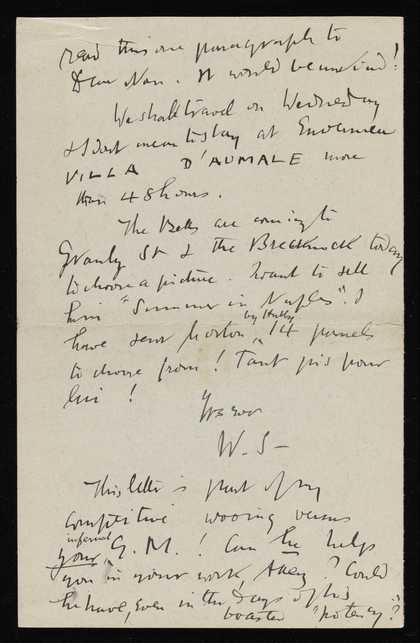 read this one paragraph to
Dear Nan. It would be unkind!
We shall travel on Wednesday
& I don't mean to stay at Envermeu
VILLA D'AUMALE more
than 48 hours.
The are coming to
Granby St & the Brecknock today
to choose a picture. I want to sell
him "Summer in Naples". I
have sent Morton by Hubby 14 panels
to choose from! Tant pis pour
lui!
Yrs ever
W. S -
This letter is part of my
competitive wooing versus
your infernal G. M.! Can he help
you in your work, ? Could
he have, even in the days of his
boasted "potency"?